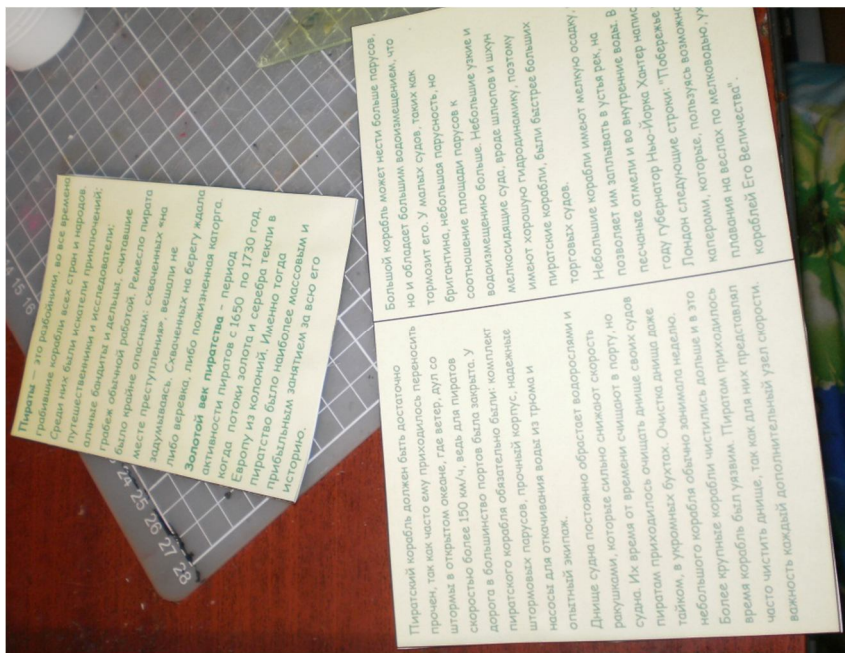 Пираты — это разбойники, во все времена
грабившие корабли всех стран и народов.
Среди них были искатели приключений,
путешественники и исследователи;
алчные бандиты и дельцы, считавшие
грабеж обычной работой. Ремесло пирата
было крайне опасным: схваченных «на
месте преступления», вешали не
задумываясь. Схваченных на берегу ждала
либо веревка, либо пожизненная каторга.
Золотой век пиратства - период
активности пиратов с 1650 по 1730 год,
когда потоки золота и серебра текли в
Европу из колоний. Именно тогда
пиратство было наиболее массовым и
прибыльным занятием за всю его
историю.
Пиратский корабль должен быть достаточно
прочен, так как часто ему приходилось переносить
штормы в открытом океане, где ветер, дул со
скоростью более 150 км/ч, ведь для пиратов
дорога в большинство портов была закрыта. У
пиратского корабля обязательно были: комплект
штормовых парусов, прочный корпус, надежные
насосы для откачивания воды из трюма и
опытный экипаж.
Днище судна постоянно обрастает водорослями и
ракушками, которые сильно снижают скорость
судна. Их время от времени счищают в порту, но
пиратам приходилось очищать днище своих судов
тайком, в укромных бухтах. Очистка днища даже
небольшого корабля обычно занимала неделю.
Более крупные корабли чистились дольше и в это
время корабль был уязвим. Пиратам приходилось
часто чистить днище, так как для них представлял
важность каждый дополнительный узел скорости.
Большой корабль может нести больше парусов,
но и обладает большим водоизмещением, что
тормозит его. У малых судов, таких как
бригантина, небольшая парусность, но
соотношение площади парусов к
водоизмещению больше. Небольшие узкие и
мелкосидящие суда, вроде шлюпов и шхун
имеют хорошую гидродинамику, поэтому
пиратские корабли, были быстрее больших
торговых судов.
Небольшие корабли имеют мелкую осадку,
позволяет им заплывать в устья рек, на
песчаные отмели и во внутренние воды. В
году губернатор Нью-Йорка Хантер
Лондон следующие строки: "Побережье
каперами, которые, пользуясь
плавания на веслах по мелководью,
кораблей Его Величества".
14 15 16
24 25 26 27 28